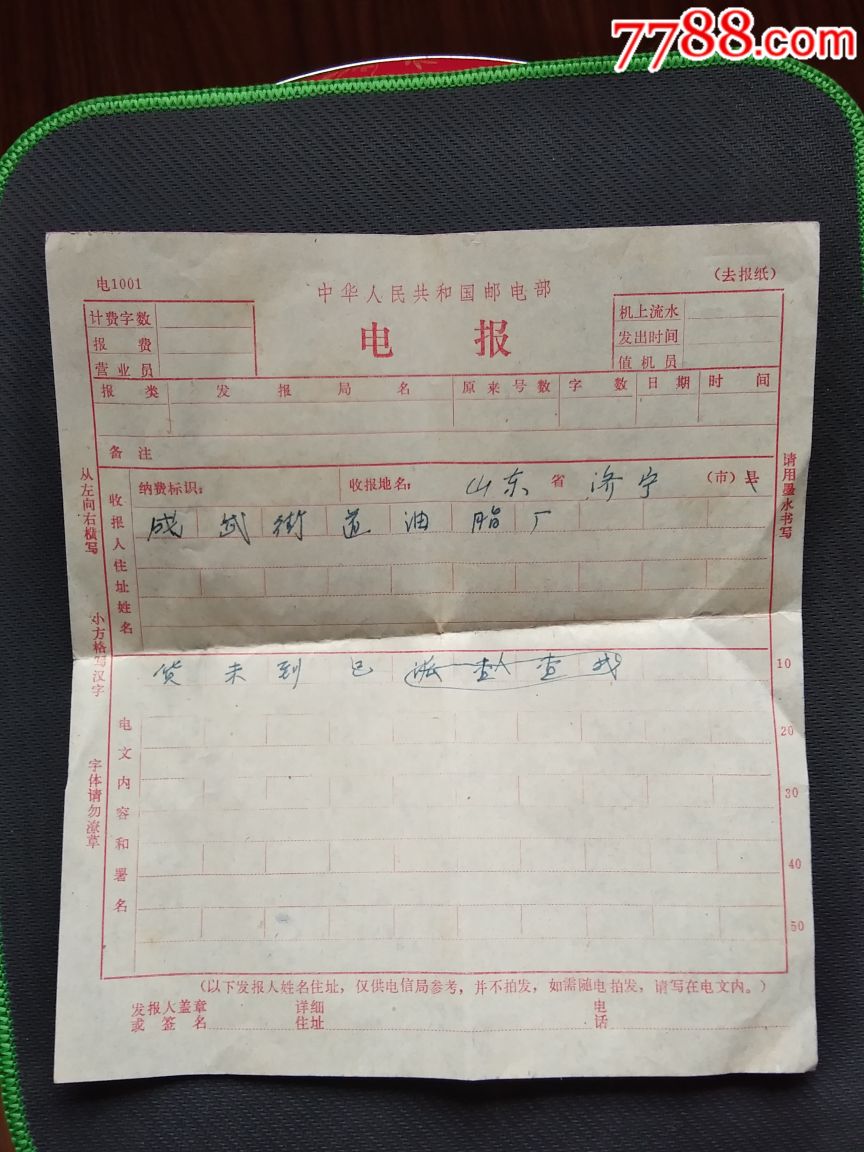 7788.com
电1001
(去报纸)
中华人民共和国邮电部
电 报
计费字数
报 费
营业员
机上流水
发出时间
值机员
报 类 发 报 局 名 原来号数 字 数 日 期 时 间
备 注
纳费标识: 收报地名: 山东 省 济宁 (市)县
收报人住址姓名
成武街道油脂厂
货未到已派人查找
10
20
30
40
50
电文内容和署名
从左向右横写
小方格写汉字
字体请勿潦草
请用墨水书写
(以下发报人姓名住址, 仅供电信局参考, 并不拍发, 如需随电拍发, 请写在电文内。)
发报人盖章 详细 电
或 签 名 住址 话